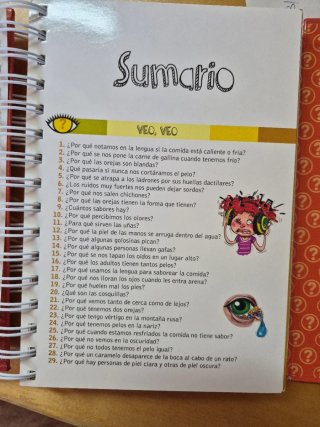 Sumario
?
VEO, VEO
1. ¿Por qué notamos en la lengua si la comida está caliente o fría?
2. ¿Por qué se nos pone la carne de gallina cuando tenemos frío?
3. ¿Por qué las orejas son blandas?
4. ¿Qué pasaría si nunca nos cortáramos el pelo?
5. ¿Por qué se atrapa a los ladrones por sus huellas dactilares?
6. ¿Los ruidos muy fuertes nos pueden dejar sordos?
7. ¿Por qué nos salen chichones?
8. ¿Por qué las orejas tienen la forma que tienen?
9. ¿Cuántos sabores hay?
10. ¿Por qué percibimos los olores?
11. ¿Para qué sirven las uñas?
12. ¿Por qué la piel de las manos se arruga dentro del agua?
13. ¿Por qué algunas golosinas pican?
14. ¿Por qué algunas personas llevan gafas?
15. ¿Por qué se nos tapan los oídos en un lugar alto?
16. ¿Por qué los adultos tienen tantos pelos?
17. ¿Por qué usamos la lengua para saborear la comida?
18. ¿Por qué nos lloran los ojos cuando les entra arena?
19. ¿Por qué huelen mal los pies?
20. ¿Qué son las cosquillas?
21. ¿Por qué vemos tanto de cerca como de lejos?
22. ¿Por qué tenemos dos orejas?
23. ¿Por qué tengo vértigo en la montaña rusa?
24. ¿Por qué tenemos pelos en la nariz?
25. ¿Por qué cuando estamos resfriados la comida no tiene sabor?
26. ¿Por qué no vemos en la oscuridad?
27. ¿Por qué no todos tenemos el pelo igual?
28. ¿Por qué un caramelo desaparece de la boca al cabo de un rato?
29. ¿Por qué hay personas de piel clara y otras de piel oscura?